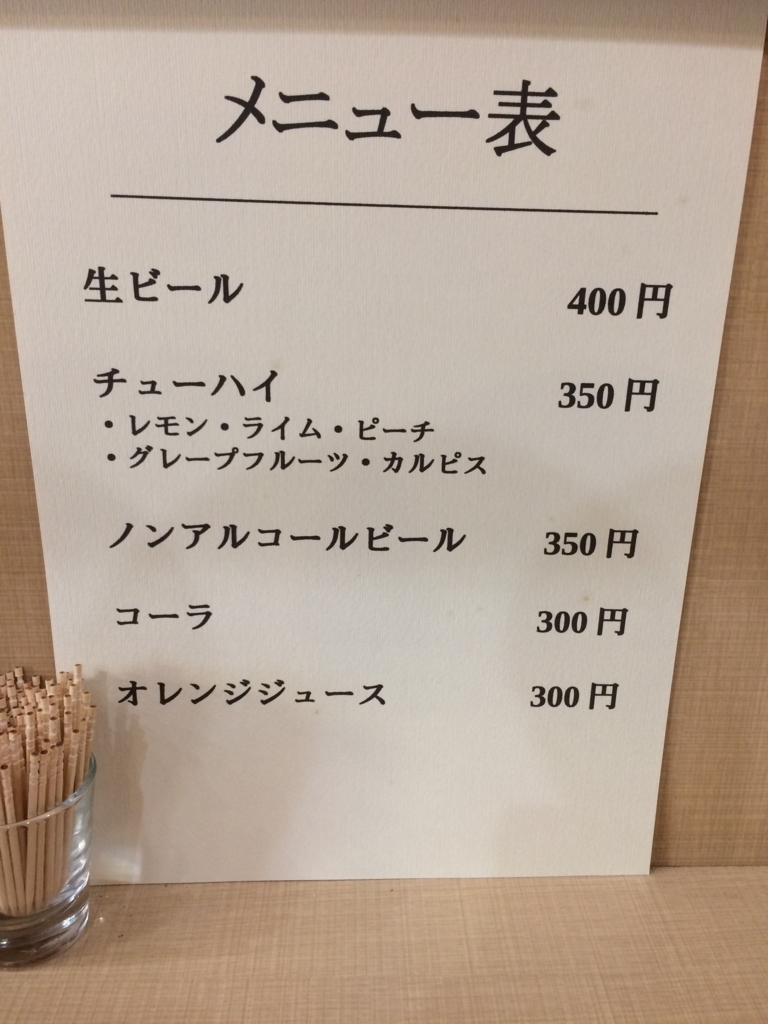 メニュー表
生ビール 400 円
チューハイ 350 円
・レモン・ライム・ピーチ
・グレープフルーツ・カルピス
ノンアルコールビール 350 円
コーラ 300 円
オレンジジュース 300 円